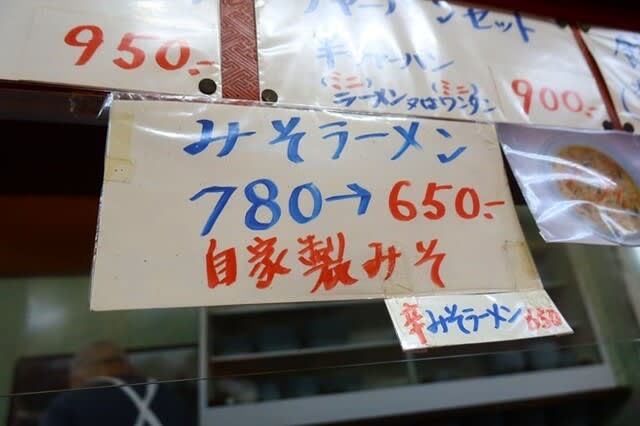 950.-
チャーハンセット
半チャーハン
(ミニ) (ミニ)
ラーメン又はワンタン
900.-
みそラーメン
780→650.-
自家製みそ
辛みそラーメン 650